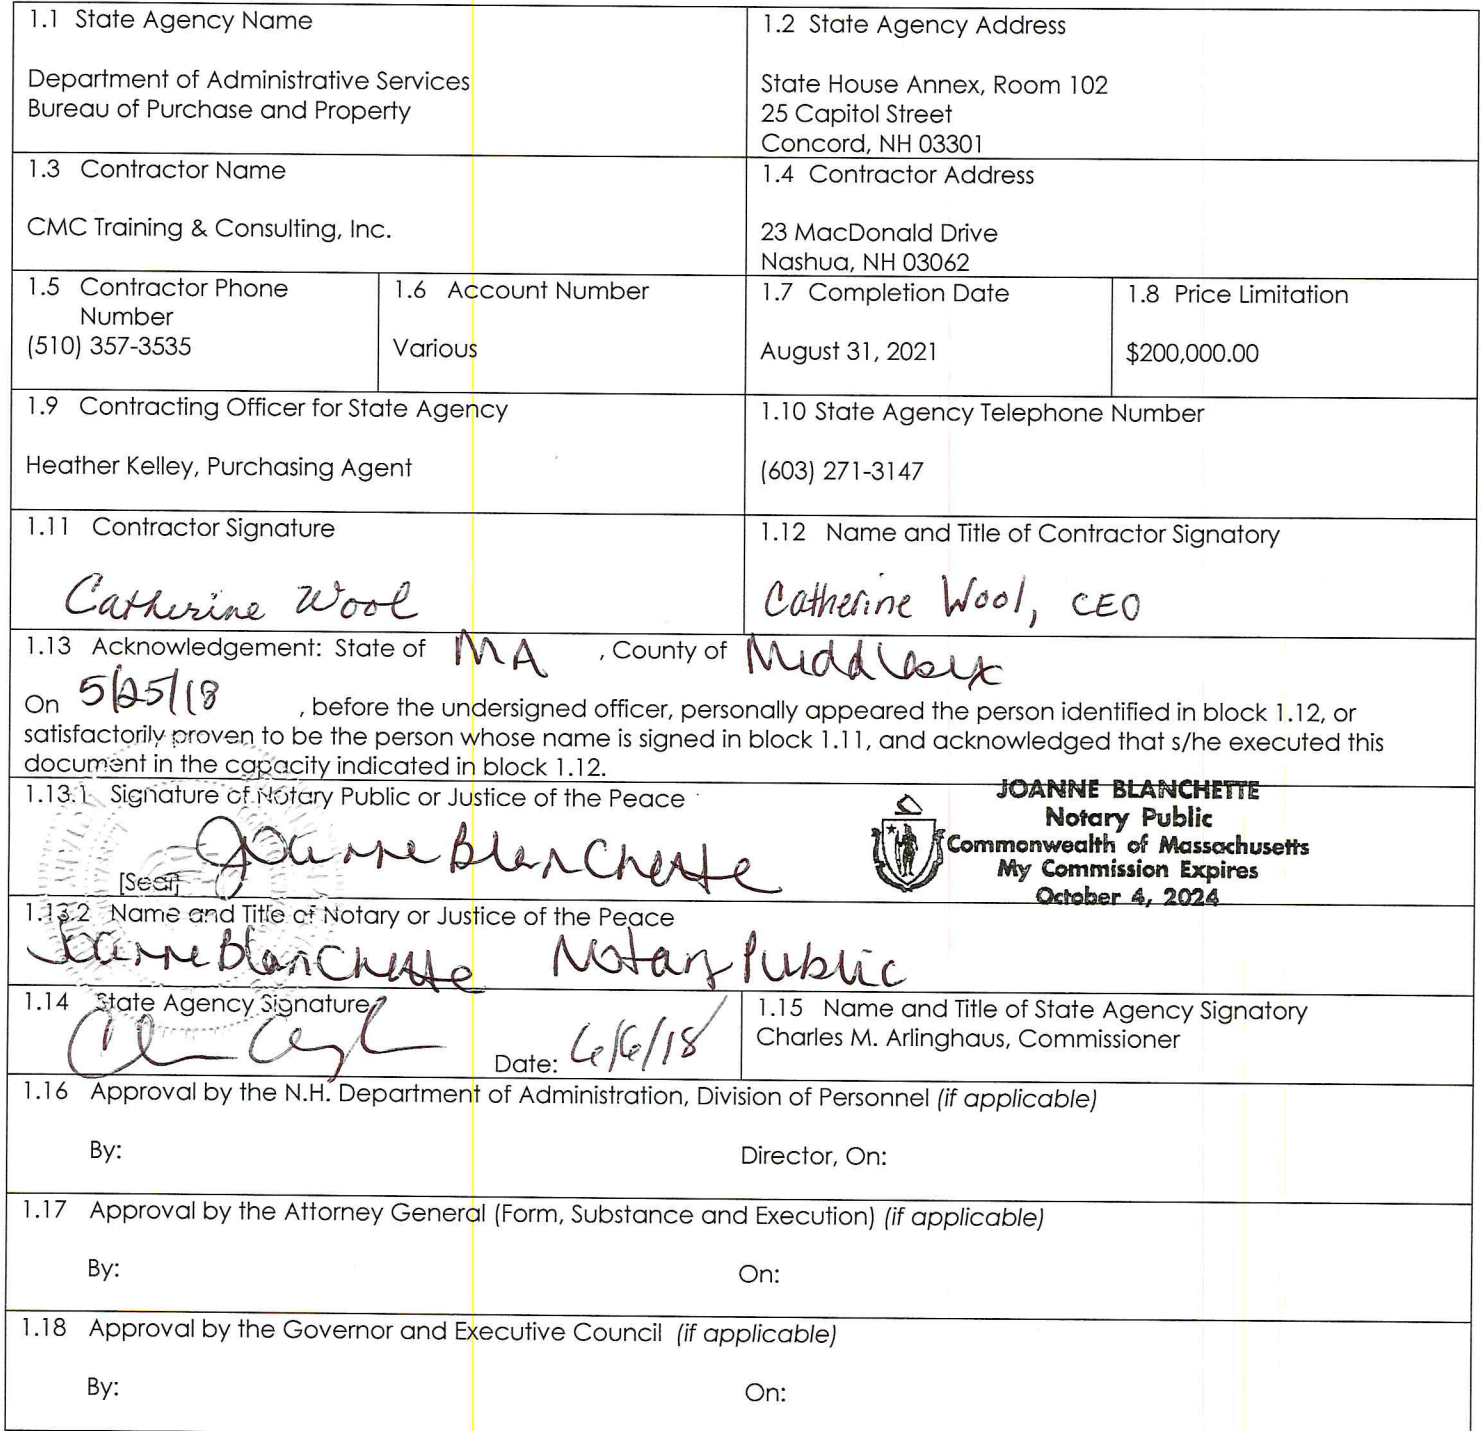 1.1 State Agency Name
Department of Administrative Services
Bureau of Purchase and Property
1.2 State Agency Address
State House Annex, Room 102
25 Capitol Street
Concord, NH 03301
1.3 Contractor Name
CMC Training & Consulting, Inc.
1.4 Contractor Address
23 MacDonald Drive
Nashua, NH 03062
1.5 Contractor Phone
Number
(510) 357-3535
1.6 Account Number
Various
1.7 Completion Date
August 31, 2021
1.8 Price Limitation
$200,000.00
1.9 Contracting Officer for State Agency
Heather Kelley, Purchasing Agent
1.10 State Agency Telephone Number
(603) 271-3147
1.11 Contractor Signature
Catherine Wool
1.12 Name and Title of Contractor Signatory
Catherine Wool, CEO
1.13 Acknowledgement: State of MA , County of Middlesex
On 5/25/18 , before the undersigned officer, personally appeared the person identified in block 1.12, or
satisfactorily proven to be the person whose name is signed in block 1.11, and acknowledged that s/he executed this
document in the capacity indicated in block 1.12.
1.13.1 Signature of Notary Public or Justice of the Peace
Joanne Blanchette
[Seal]
JOANNE BLANCHETTE
Notary Public
Commonwealth of Massachusetts
My Commission Expires
October 4, 2024
1.13.2 Name and Title of Notary or Justice of the Peace
Joanne Blanchette Notary Public
1.14 State Agency Signature
Date: 6/6/18
1.15 Name and Title of State Agency Signatory
Charles M. Arlinghaus, Commissioner
1.16 Approval by the N.H. Department of Administration, Division of Personnel (if applicable)
By: Director, On:
1.17 Approval by the Attorney General (Form, Substance and Execution) (if applicable)
By: On:
1.18 Approval by the Governor and Executive Council (if applicable)
By: On: